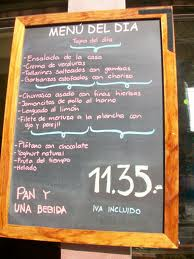 MENÚ DEL DIA
Tapas del dia
- Ensalada de la casa
- Crema de verduras
- Tallarines salteados con gambas
- Garbanzos estofados con chorizo
- Churrasco asado con finas hierbas
- Jamoncitos de pollo al horno
- Lenguado al limón
- Filete de merluza a la plancha con
ajo y perejil
- Plátano con chocolate
- Yoghurt natural
- Fruta del tiempo
- Helado
PAN Y
UNA BEBIDA
11.35.-
IVA INCLUIDO